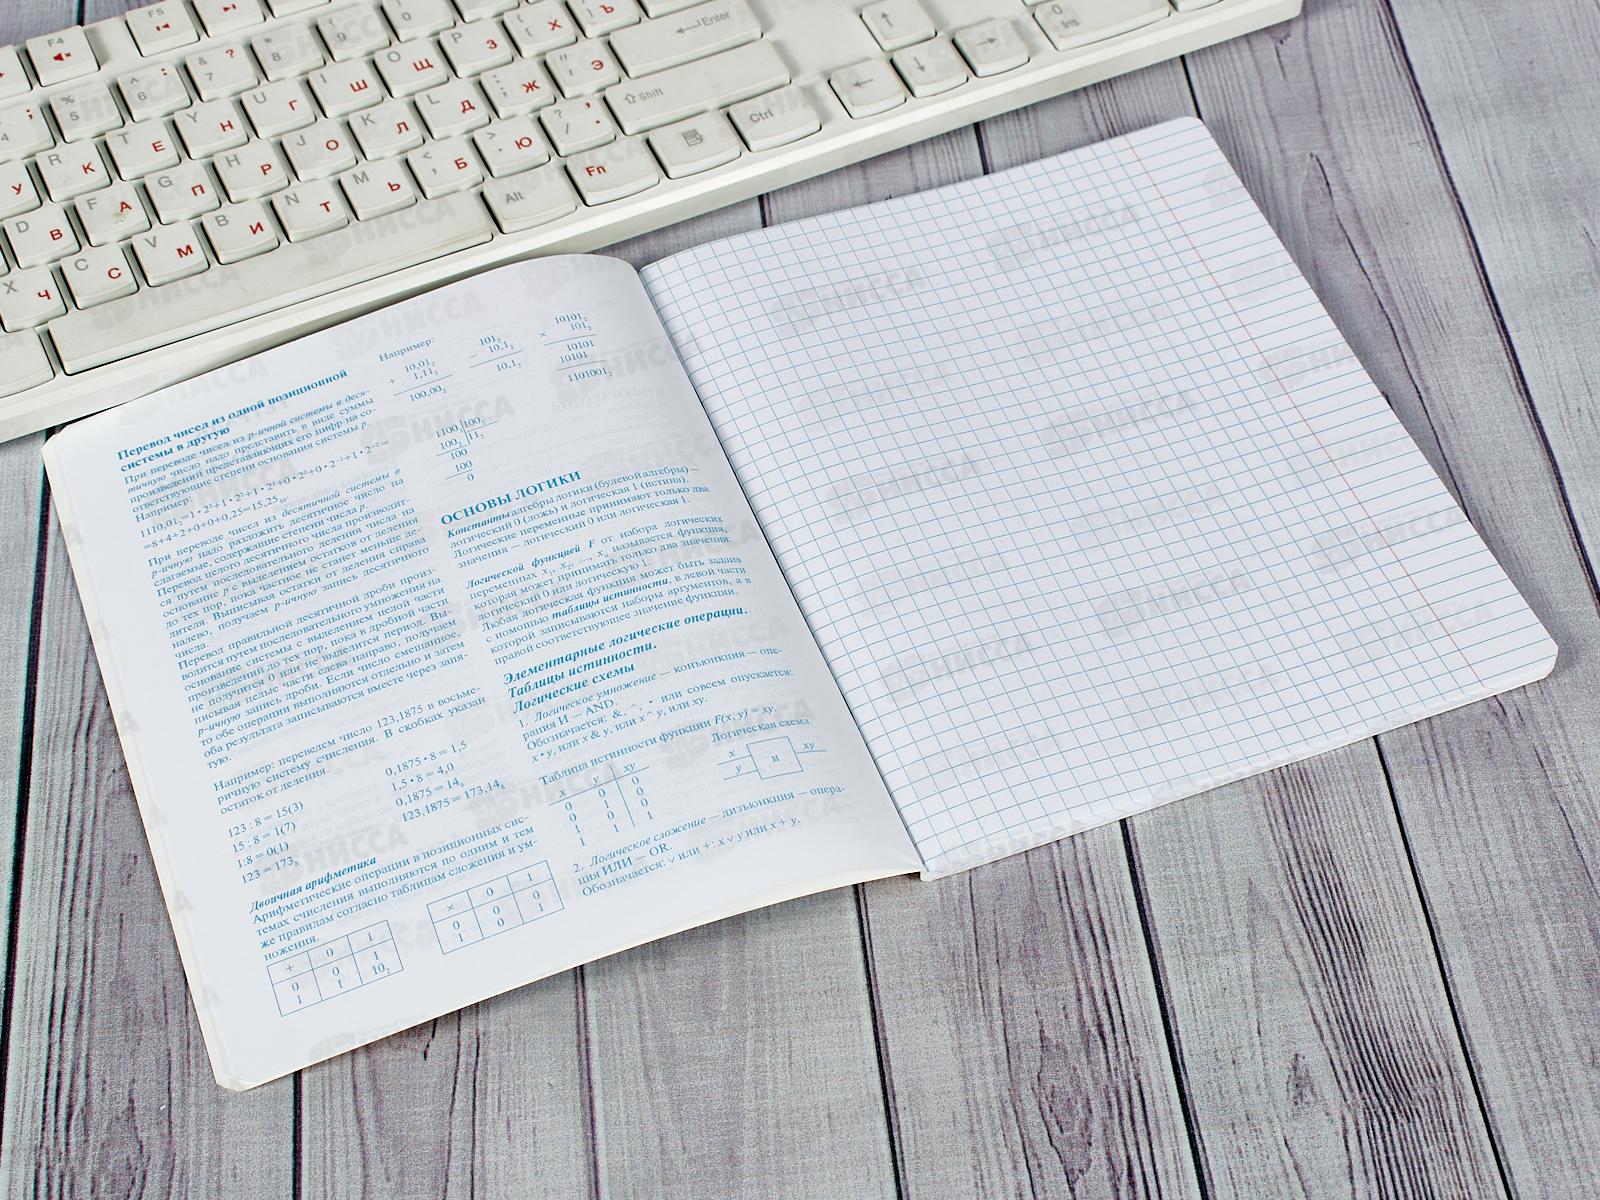 Перевод чисел из одной позиционной
системы в другую
При переводе чисел из р-ичной системы в деся-
тичную число надо представить в виде суммы
произведений представляющих его цифр на со-
ответствующие степени основания системы р.
Например:
1110,01₂=1•2³+1•2²+1•2¹+0•2⁰+0•2⁻¹+1•2⁻²=
=8+4+2+0+0+0,25=15,25₁₀.
При переводе чисел из десятичной системы в
р-ичную надо разложить десятичное число на
слагаемые, содержащие степени числа р.
Перевод целого десятичного числа производит-
ся путем последовательного деления числа на
основание р с выделением остатков от деления
до тех пор, пока частное не станет меньше де-
лителя. Выписывая остатки от деления справа
налево, получаем р-ичную запись десятичного
числа.
Перевод правильной десятичной дроби произ-
водится путем последовательного умножения на
основание системы с выделением целой части
произведений до тех пор, пока в дробной части
не получится 0 или не выделится период. Вы-
писывая целые части слева направо, получаем
р-ичную запись дроби. Если число смешанное,
то обе операции выполняются отдельно и затем
оба результата записываются вместе через запя-
тую.
Например: переведем число 123,1875 в восьме-
ричную систему счисления. В скобках указан
остаток от деления.
123 : 8 = 15(3)
15 : 8 = 1(7)
1:8 = 0(1)
123 = 173₈
0,1875 • 8 = 1,5
1,5 • 8 = 4,0
0,1875 = 14₈
123,1875 = 173,14₈
Двоичная арифметика
Арифметические операции в позиционных сис-
темах счисления выполняются по одним и тем
же правилам согласно таблицам сложения и ум-
ножения.
+ 0 1
0 0 1
1 1 10₂
× 0 1
0 0 0
1 0 1
Например:
+ 10,01₂
1,11₂
100,00₂
− 101₂
10,1₂
10,1₂
× 10101₂
101₂
10101
10101
1101001₂
1100₂ 100₂
100₂ 11₂
100
100
0
ОСНОВЫ ЛОГИКИ
Константы алгебры логики (булевой алгебры) —
логический 0 (ложь) и логическая 1 (истина).
Логические переменные принимают только два
значения — логический 0 или логическая 1.
Логической функцией F от набора логических
переменных x₁, x₂, ..., xₙ называется функция,
которая может принимать только два значения:
логический 0 или логическую 1.
Любая логическая функция может быть задана
с помощью таблицы истинности, в левой части
которой записываются наборы аргументов, а в
правой соответствующее значение функции.
Элементарные логические операции.
Таблицы истинности.
Логические схемы
1. Логическое умножение — конъюнкция — опе-
рация И — AND.
Обозначается: &, ^, • или совсем опускается:
x • y, или x & y, или x ^ y, или xy.
Таблица истинности функции F(x, y) = xy.
x y xy
0 0 0
0 1 0
1 0 0
1 1 1
Логическая схема
x и xy
y
2. Логическое сложение — дизъюнкция — опера-
ция ИЛИ — OR.
Обозначается: ∨ или +: x∨y или x + y.